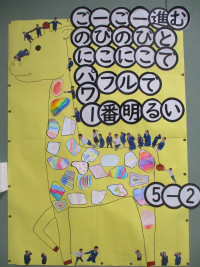 こーこー進む
のびのびと
にこにこで
パワフルで
1番明るい
5-2